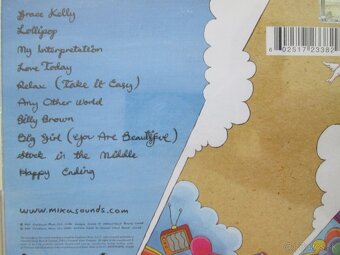 Grace Kelly
Lollipop
My Interpretation
Love Today
Relax (Take It Easy)
Any Other World
Billy Brown
Big Girl (You Are Beautiful)
Stuck in the Middle
Happy Ending
www.mikasounds.com
6 02517 23382